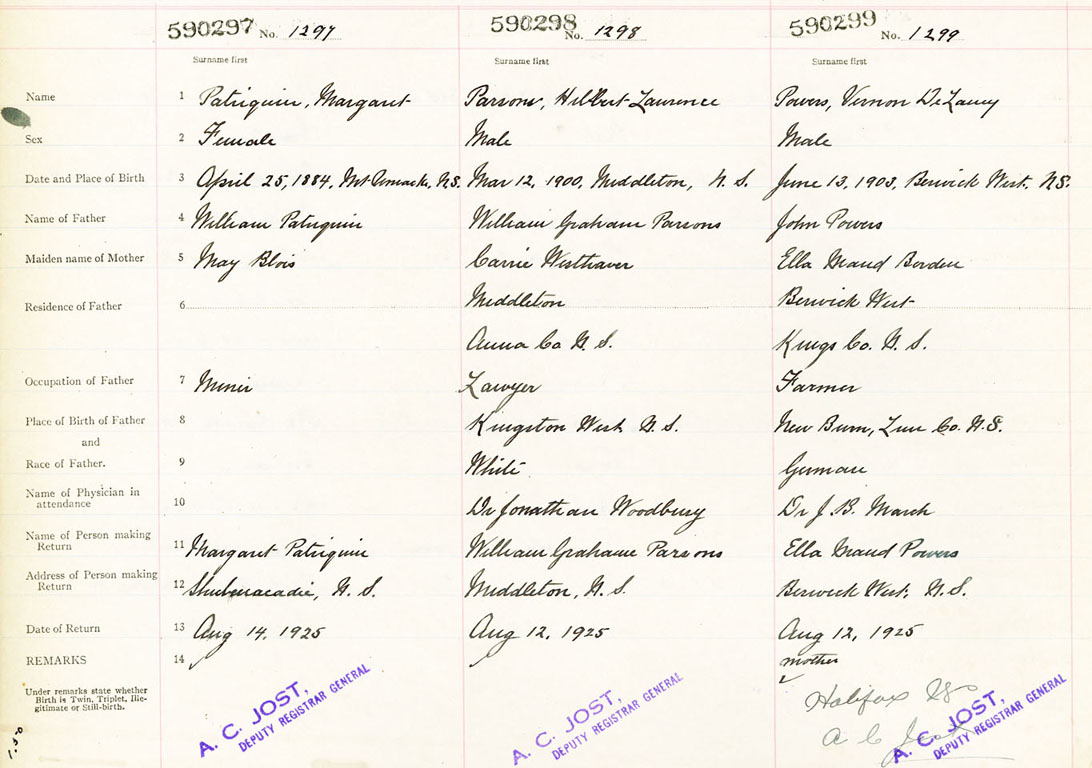 590297 No. 1297 590298 No. 1298 590299 No. 1299
Surname first Surname first Surname first
Name 1 Patriquin, Margaret Parsons, Hilbert Lawrence Powers, Vernon DeLancy
Sex 2 Female Male Male
Date and Place of Birth 3 April 25, 1884, Mt Uniacke, N.S. Mar 12, 1900, Middleton, N. S. June 13, 1903, Berwick West. N.S.
Name of Father 4 William Patriquin William Grahame Parsons John Powers
Maiden name of Mother 5 May Blois Carrie Westhaver Ella Maud Borden
Residence of Father 6 Middleton Berwick West
Anna Co N. S. Kings Co. N. S.
Occupation of Father 7 Miner Lawyer Farmer
Place of Birth of Father 8 Kingston West N. S. New Burn, Lun Co. N.S.
and
Race of Father. 9 White German
Name of Physician in
attendance 10 Dr Jonathan Woodbury Dr J. B. March
Name of Person making
Return 11 Margaret Patriquin William Grahame Parsons Ella Maud Powers
Address of Person making
Return 12 Shubenacadie, N. S. Middleton, N. S. Berwick West, N. S.
Date of Return 13 Aug 14, 1925 Aug 12, 1925 Aug 12, 1925
REMARKS 14 mother
Under remarks state whether
Birth is Twin, Triplet, Ille-
gitimate or Still-birth.
Halifax NS
A C Jost
A. C. JOST,
DEPUTY REGISTRAR GENERAL
A. C. JOST,
DEPUTY REGISTRAR GENERAL
A. C. JOST,
DEPUTY REGISTRAR GENERAL
1.50